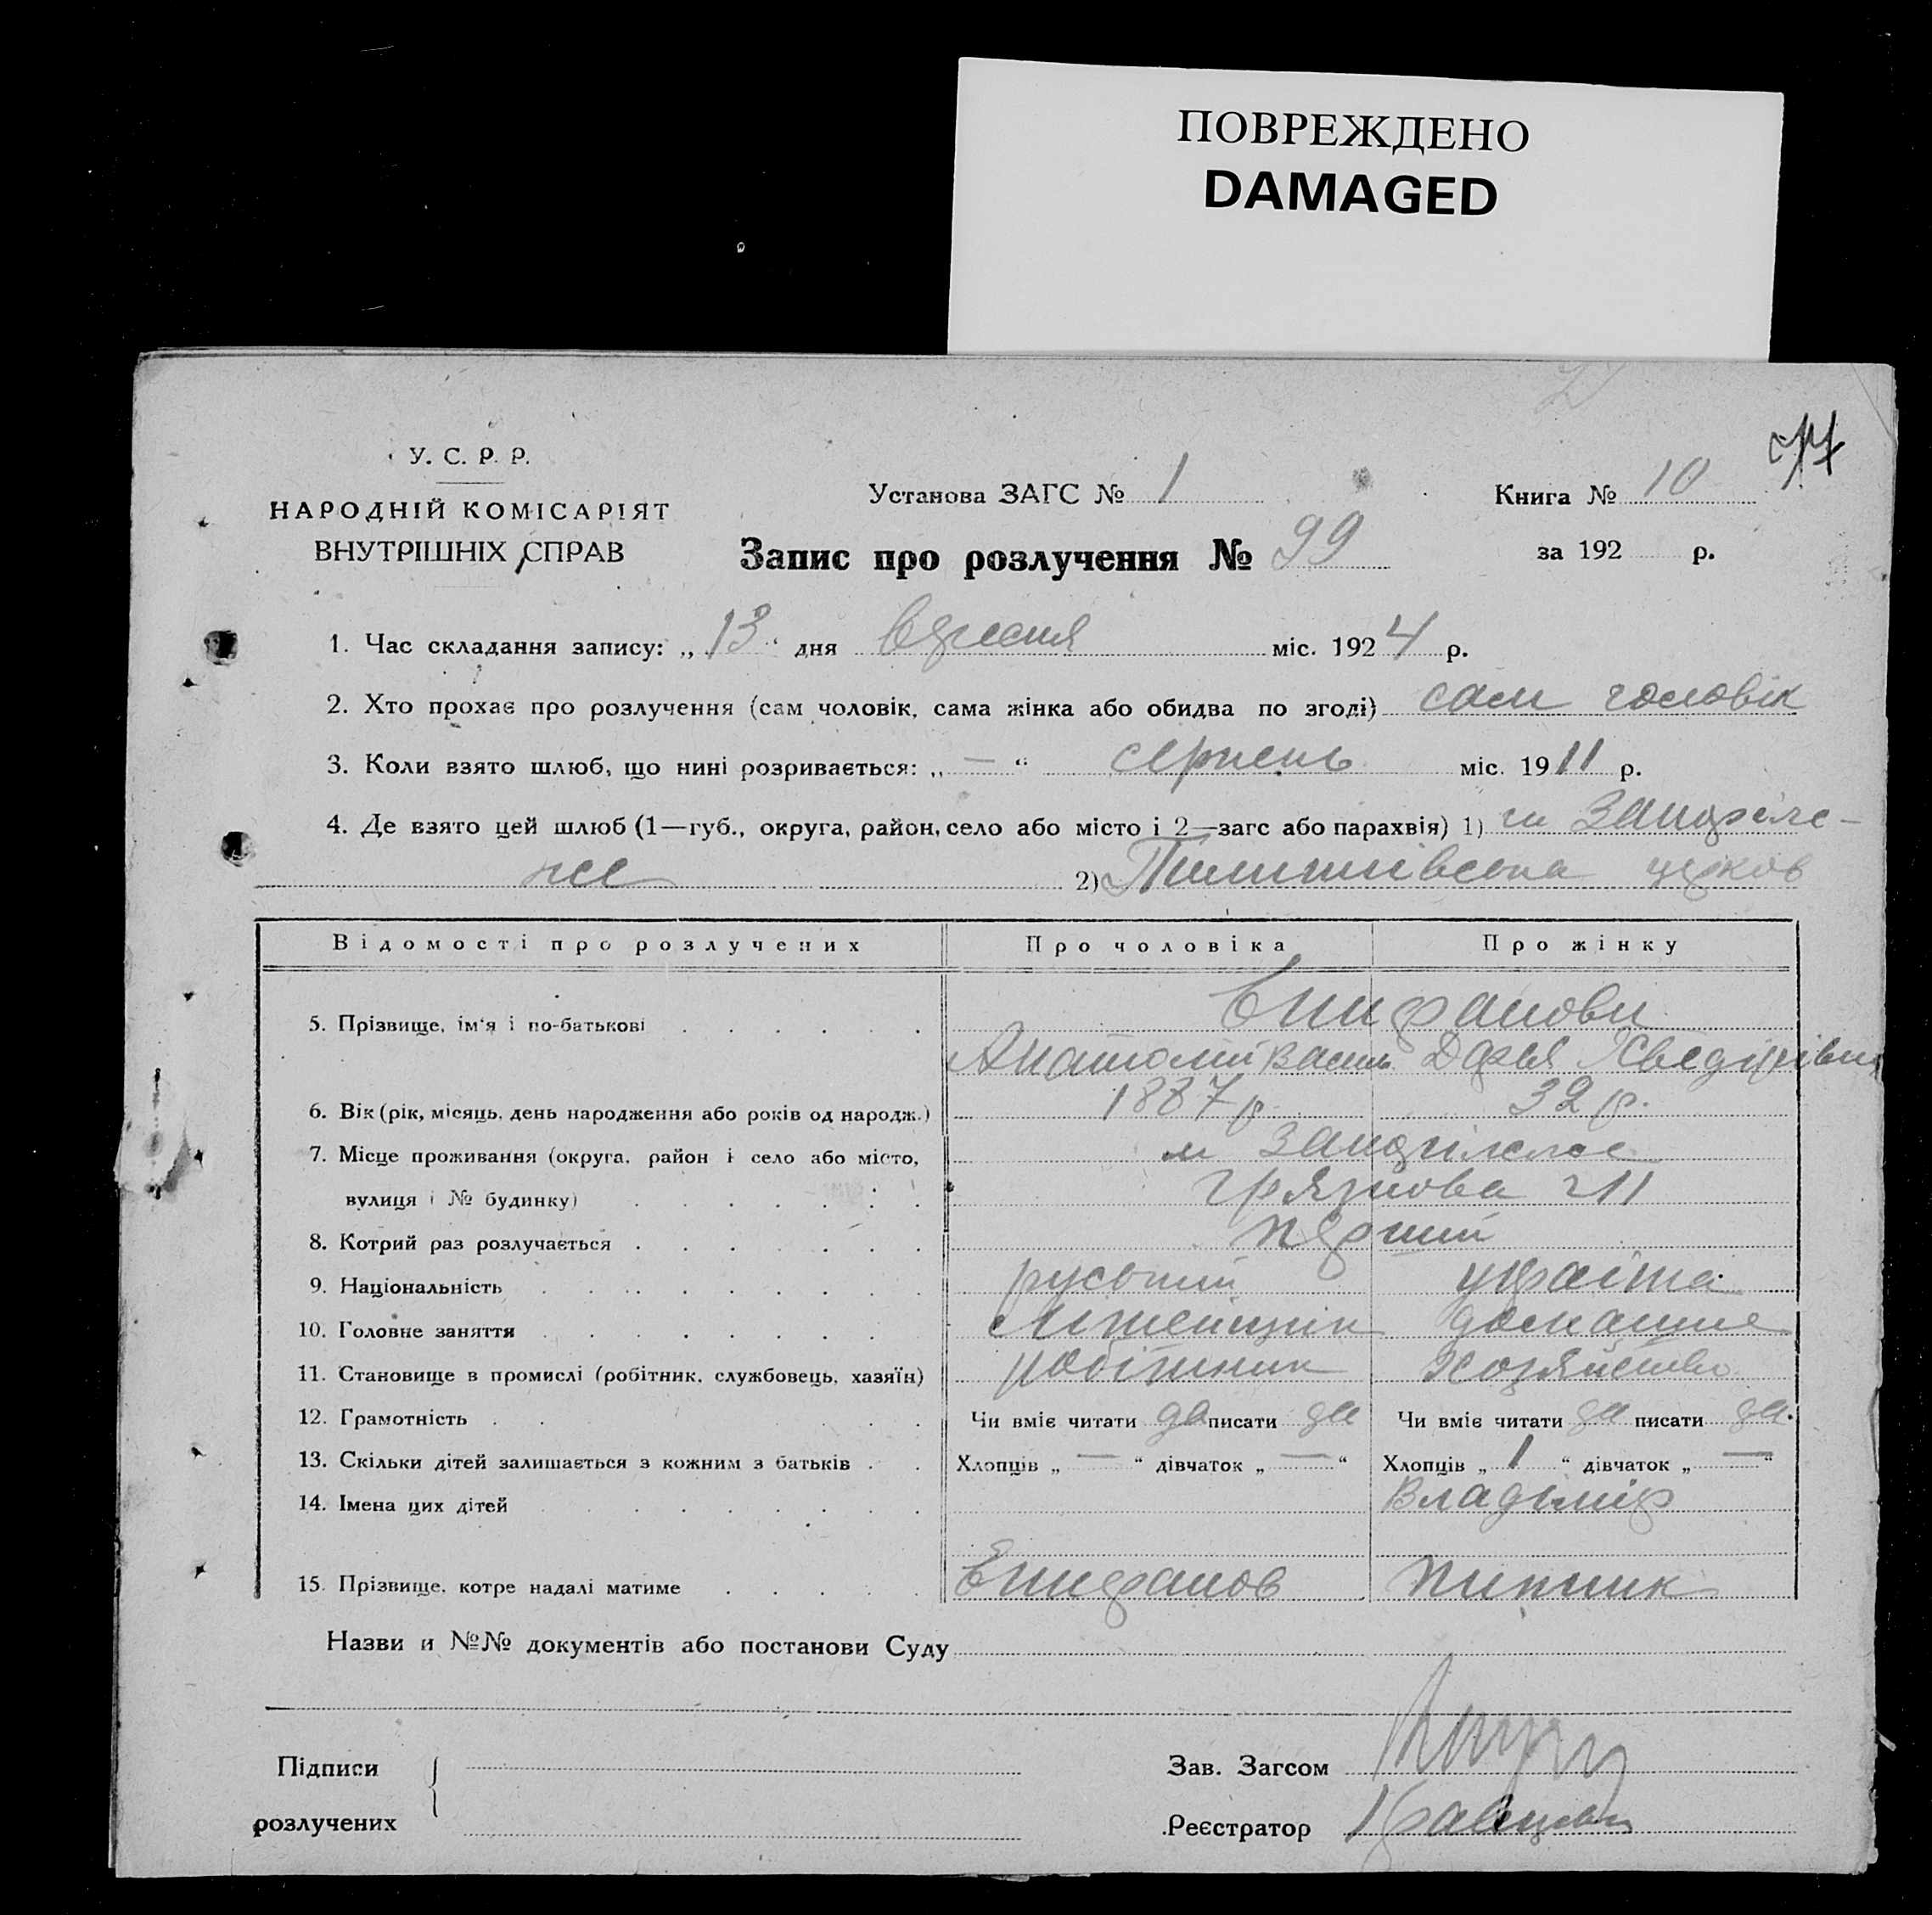 ПОВРЕЖДЕНО
DAMAGED
У. С. Р. Р.
НАРОДНІЙ КОМІСАРІЯТ
ВНУТРІШНІХ СПРАВ
Установа ЗАГС № 1
Книга № 10
Запис про розлучення № 99
за 192 р.
1. Час складання запису: „13“ дня вересня міс. 1924 р.
2. Хто прохає про розлучення (сам чоловік, сама жінка або обидва по згоді) сам чоловік
3. Коли взято шлюб, що нині розривається: „—“ серпень міс. 1911 р.
4. Де взято цей шлюб (1—губ., округа, район, село або місто і 2—загс або парахвія) 1) м Запоріж-
же 2) церков
Відомості про розлучених Про чоловіка Про жінку
5. Прізвище, ім'я і по-батькові Епифанови
Анатолій Василь Дарья Хведорівна
6. Вік (рік, місяць, день народження або років од народж.) 1887 р. 32 р.
7. Місце проживання (округа, район і село або місто, м Запоріжже
вулиця і № будинку) Грязнова 211
8. Котрий раз розлучається перший
9. Національність руський україн.
10. Головне заняття домашне
11. Становище в промислі (робітник, службовець, хазяїн) робітник хозяйство
12. Грамотність Чи вміє читати да писати да Чи вміє читати да писати да.
13. Скільки дітей залишається з кожним з батьків Хлопців „—“ дівчаток „—“ Хлопців „1“ дівчаток „—“
14. Імена цих дітей Владьмір
15. Прізвище, котре надалі матиме Епифанов Пипник
Назви и №№ документів або постанови Суду
Підписи
розлучених
Зав. Загсом
Реєстратор